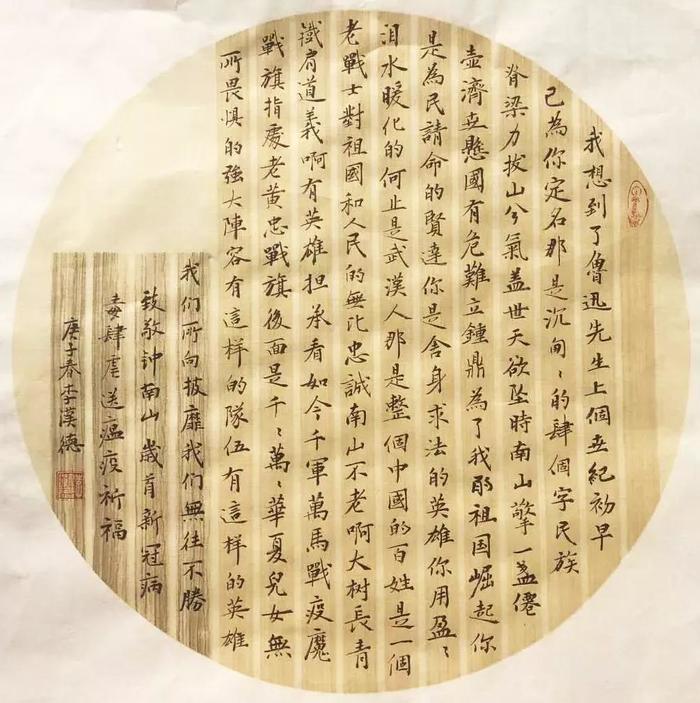 我想到了魯迅先生上個世紀初早
已為你定名那是沉甸〻的肆個字民族
脊梁力拔山兮氣盖世天欲坠時南山擎一盏僊
壺濟世懸國有危難立鍾鼎為了我的祖国崛起你
是為民請命的賢達你是舍身求法的英雄你用盈〻
泪水暖化的何止是武漢人那是整個中國的百姓是一個
老戰士對祖國和人民的無比忠誠南山不老啊大树長青
鐵肩道義啊有英雄担承看如今千軍萬馬戰疫魔
戰旗指處老黄忠戰旗後面是千〻萬〻華夏兒女無
所畏惧的強大陣容有這样的隊伍有這样的英雄
我们所向披靡我们無往不勝
致敬钟南山歲首新冠病
毒肆虐送瘟疫祈福
庚子春李漢德